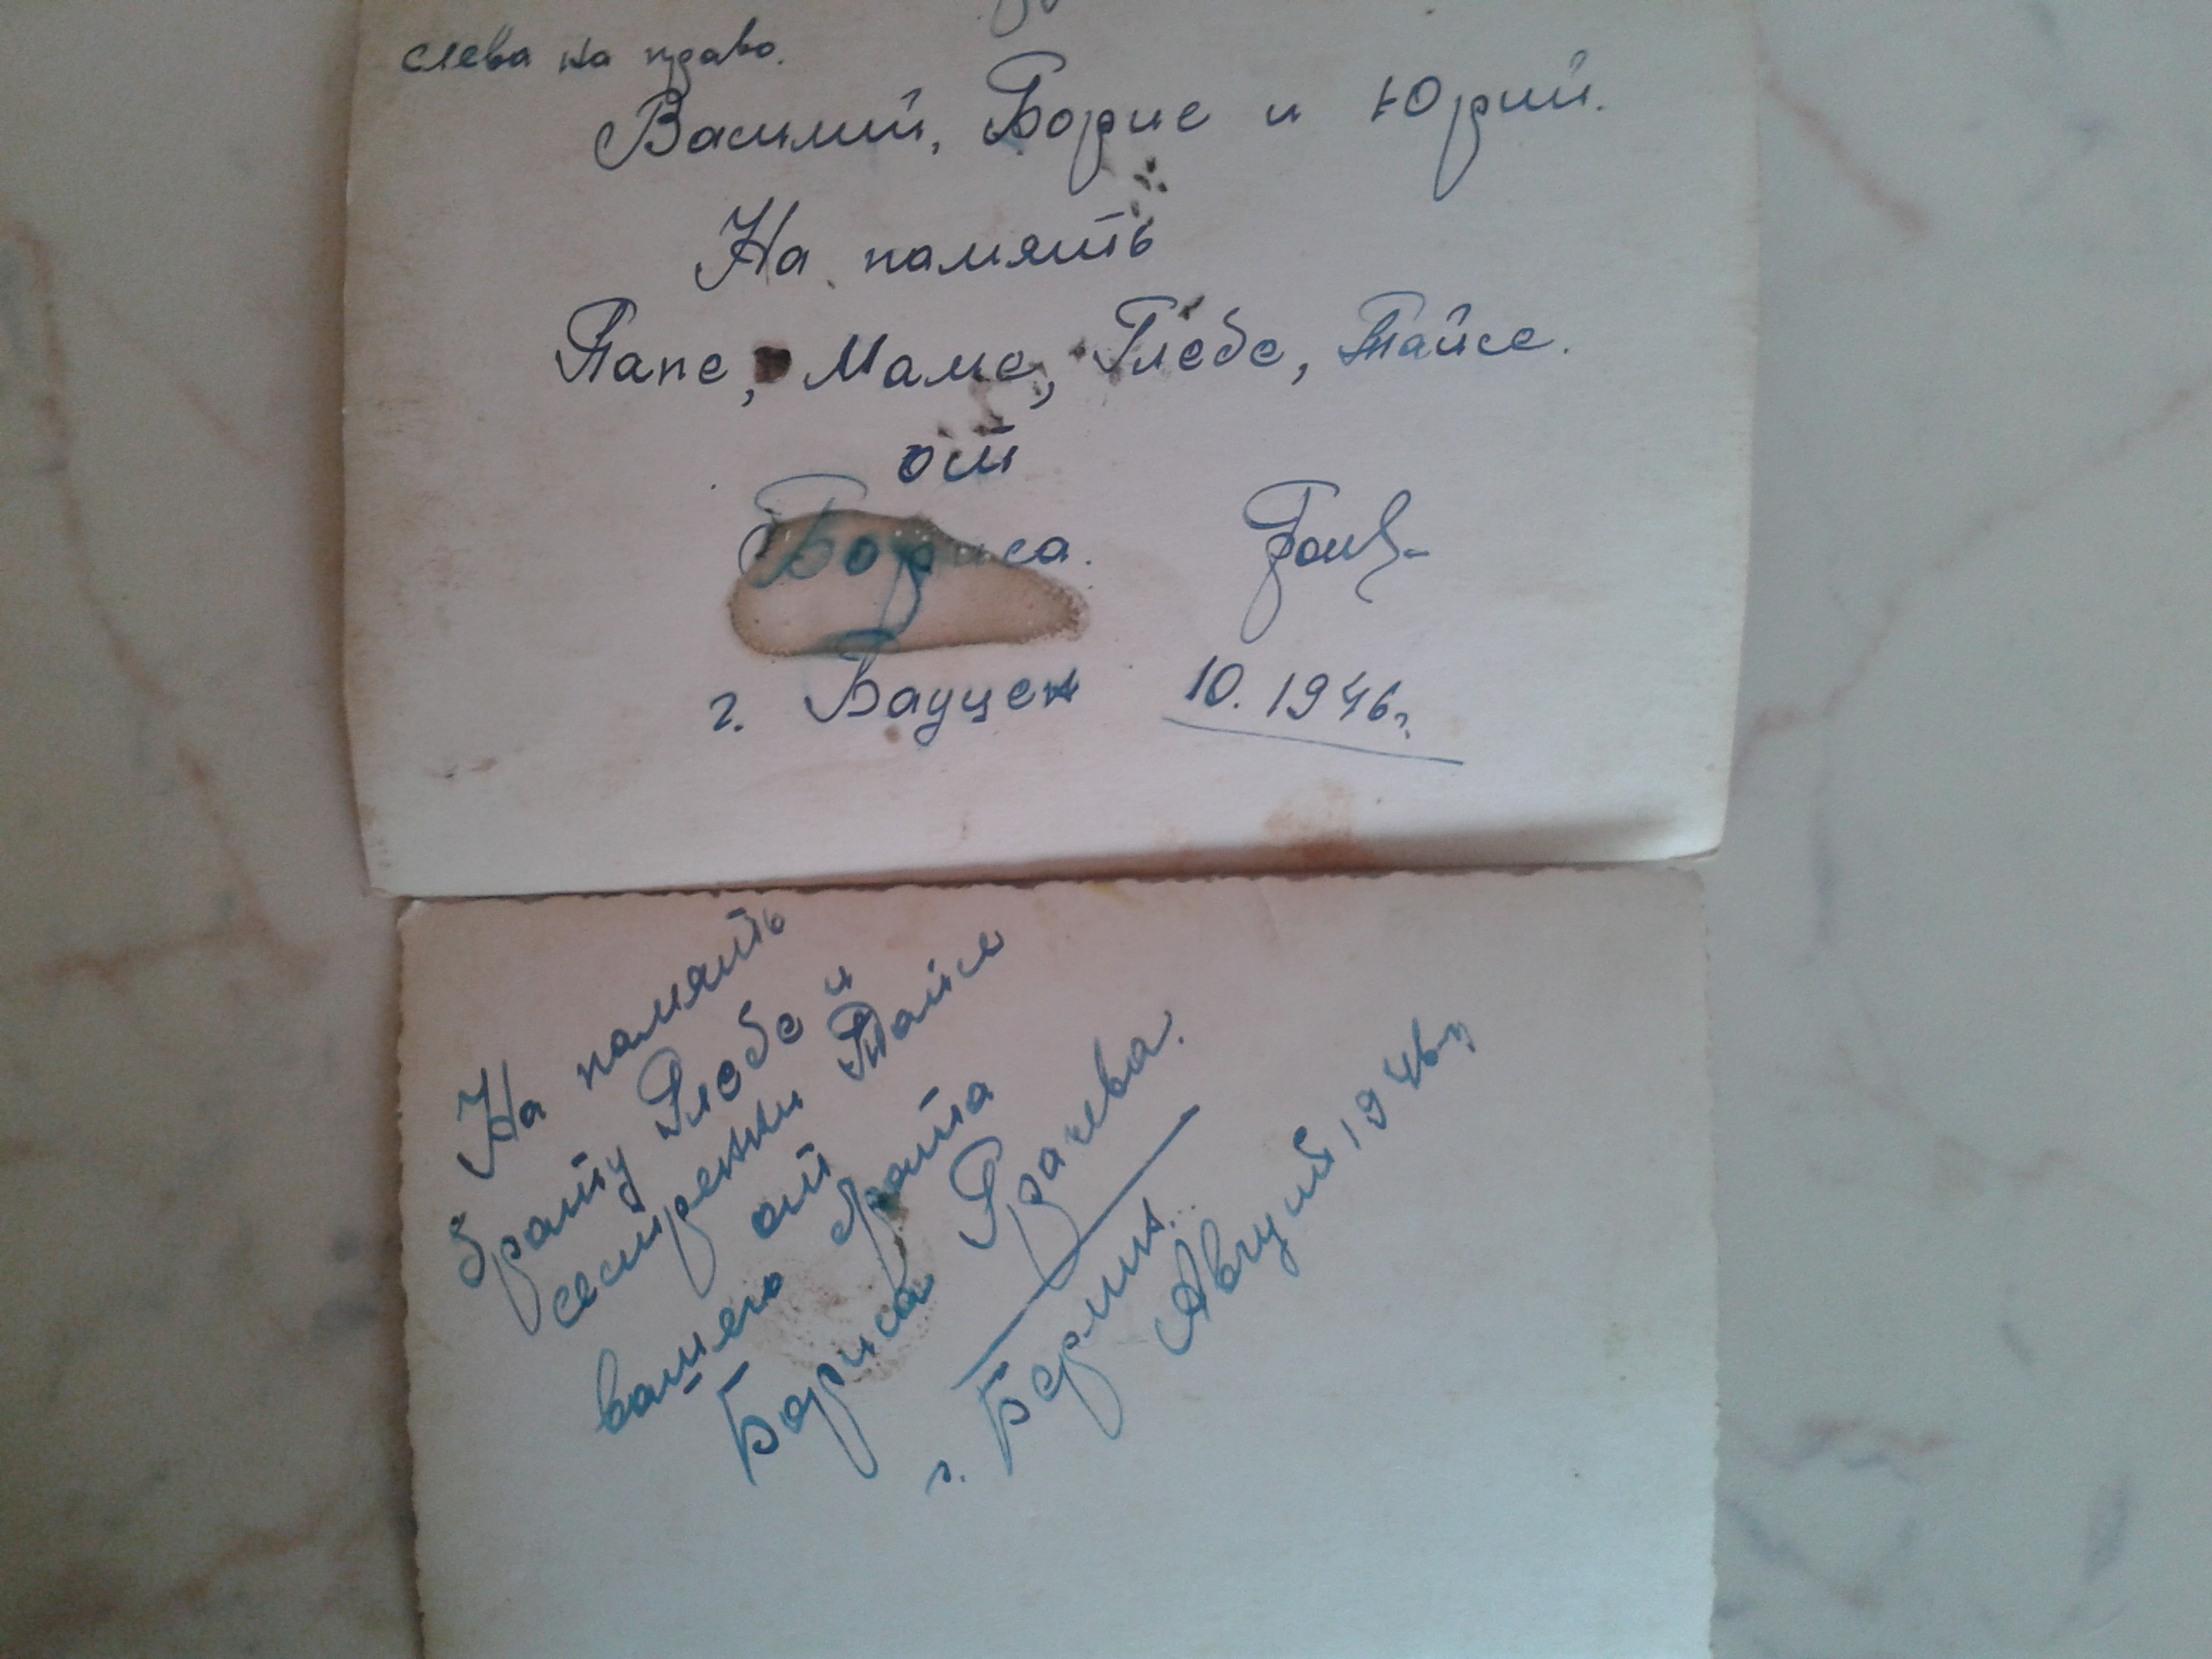 слева на право.
Василий, Борис и Юрий.
На память
Папе, Маме, Глебе, Тайсе.
от
Бориса.
г. Бауцен 10.1946г.
На память
брату Глебе и
сестренки Тайсе
от
вашего брата
Бориса Грачева.
г. Берлин.
Август 1946г.